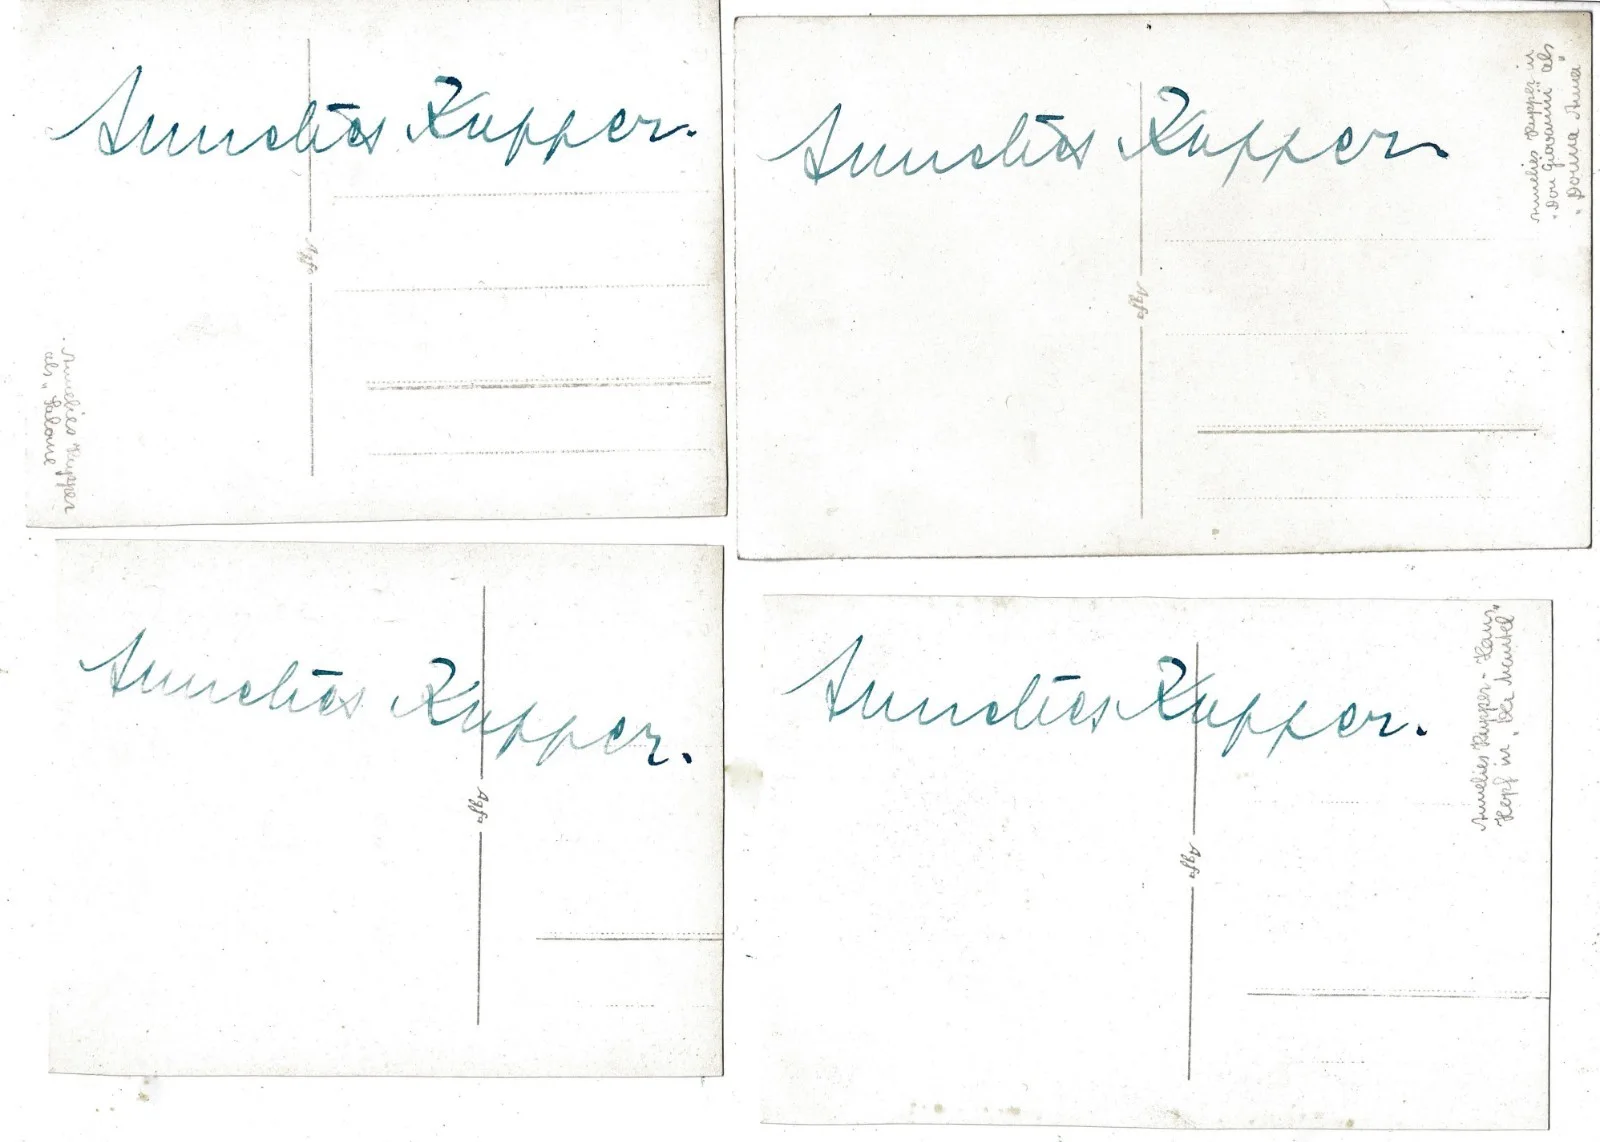 Annelies Kupper.
Agfa
Annelies Kupper
als "Salome
Annelies Kupper.
Agfa
Annelies Kupper in
"Don Giovanni" als
"Donna Anna"
Annelies Kupper.
Agfa
Annelies Kupper.
Agfa
Annelies Kupper - Hans
Hopf in "Der Mantel"